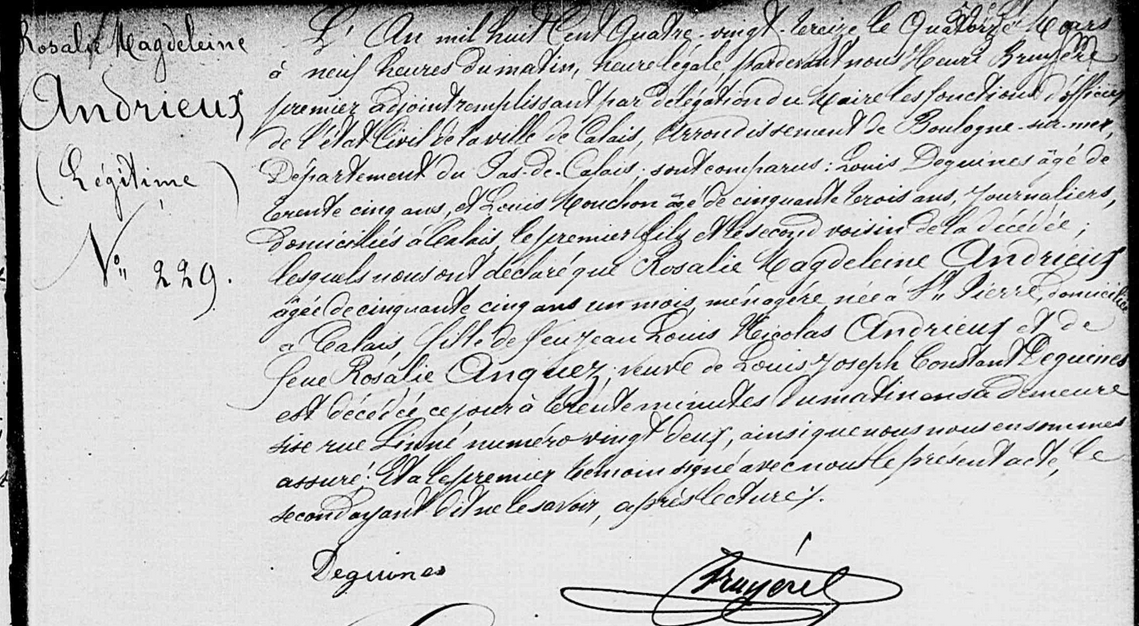 Rosalie Magdeleine
Andrieux
(Légitime)
N° 229.
L'An mil huit Cent Quatre-vingt-treize le Quatorze Mars
à neuf heures du matin, heure légale, pardevant nous Henri Bruyère
premier adjoint remplissant par délégation du Maire les fonctions d'officier
de l'état Civil de la ville de Calais, Arrondissement de Boulogne-sur-mer,
Département du Pas-de-Calais; sont comparus: Louis Deguines âgé de
trente cinq ans, et Louis Mouchon âgé de cinquante trois ans, Journaliers,
domiciliés à Calais, le premier fils et le second voisin de la décédée;
lesquels nous ont déclaré que Rosalie Magdeleine Andrieux
âgée de cinquante cinq ans un mois, ménagère née à St Pierre, domiciliée
à Calais fille de feu Jean Louis Nicolas Andrieux et de
feue Rosalie Anquez; veuve de Louis Joseph Constant Deguines
est décédée ce jour à trente minutes du matin en sa demeure
sise rue Linné numéro vingt deux, ainsi que nous nous en sommes
assuré. Et a le premier témoin signé avec nous le présent acte, le
second ayant dit ne le savoir, après lecture.
Deguines